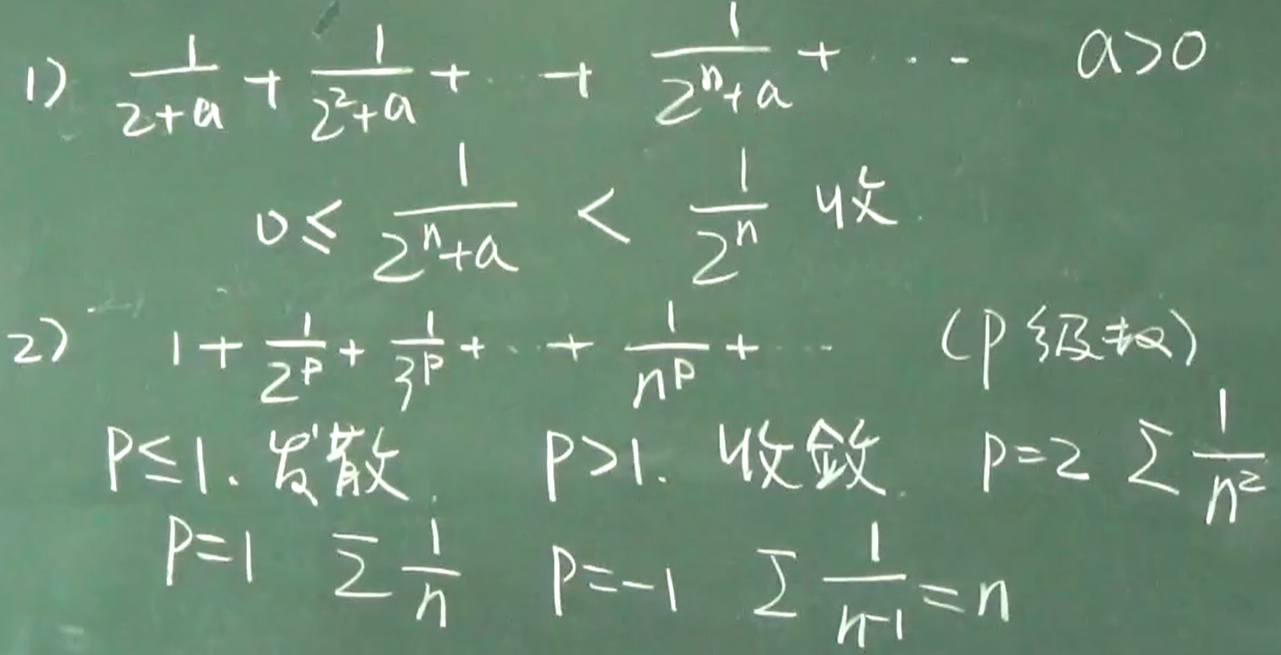 1) 1/(2+a) + 1/(2²+a) + ⋯ + 1/(2ⁿ+a) + ⋯ a>0
0 ≤ 1/(2ⁿ+a) < 1/2ⁿ 收.
2) 1 + 1/2ᵖ + 1/3ᵖ + ⋯ + 1/nᵖ + ⋯ (P级数)
P≤1. 发散. P>1. 收敛. P=2 Σ 1/n²
P=1 Σ 1/n P=-1 Σ 1/n⁻¹ = n